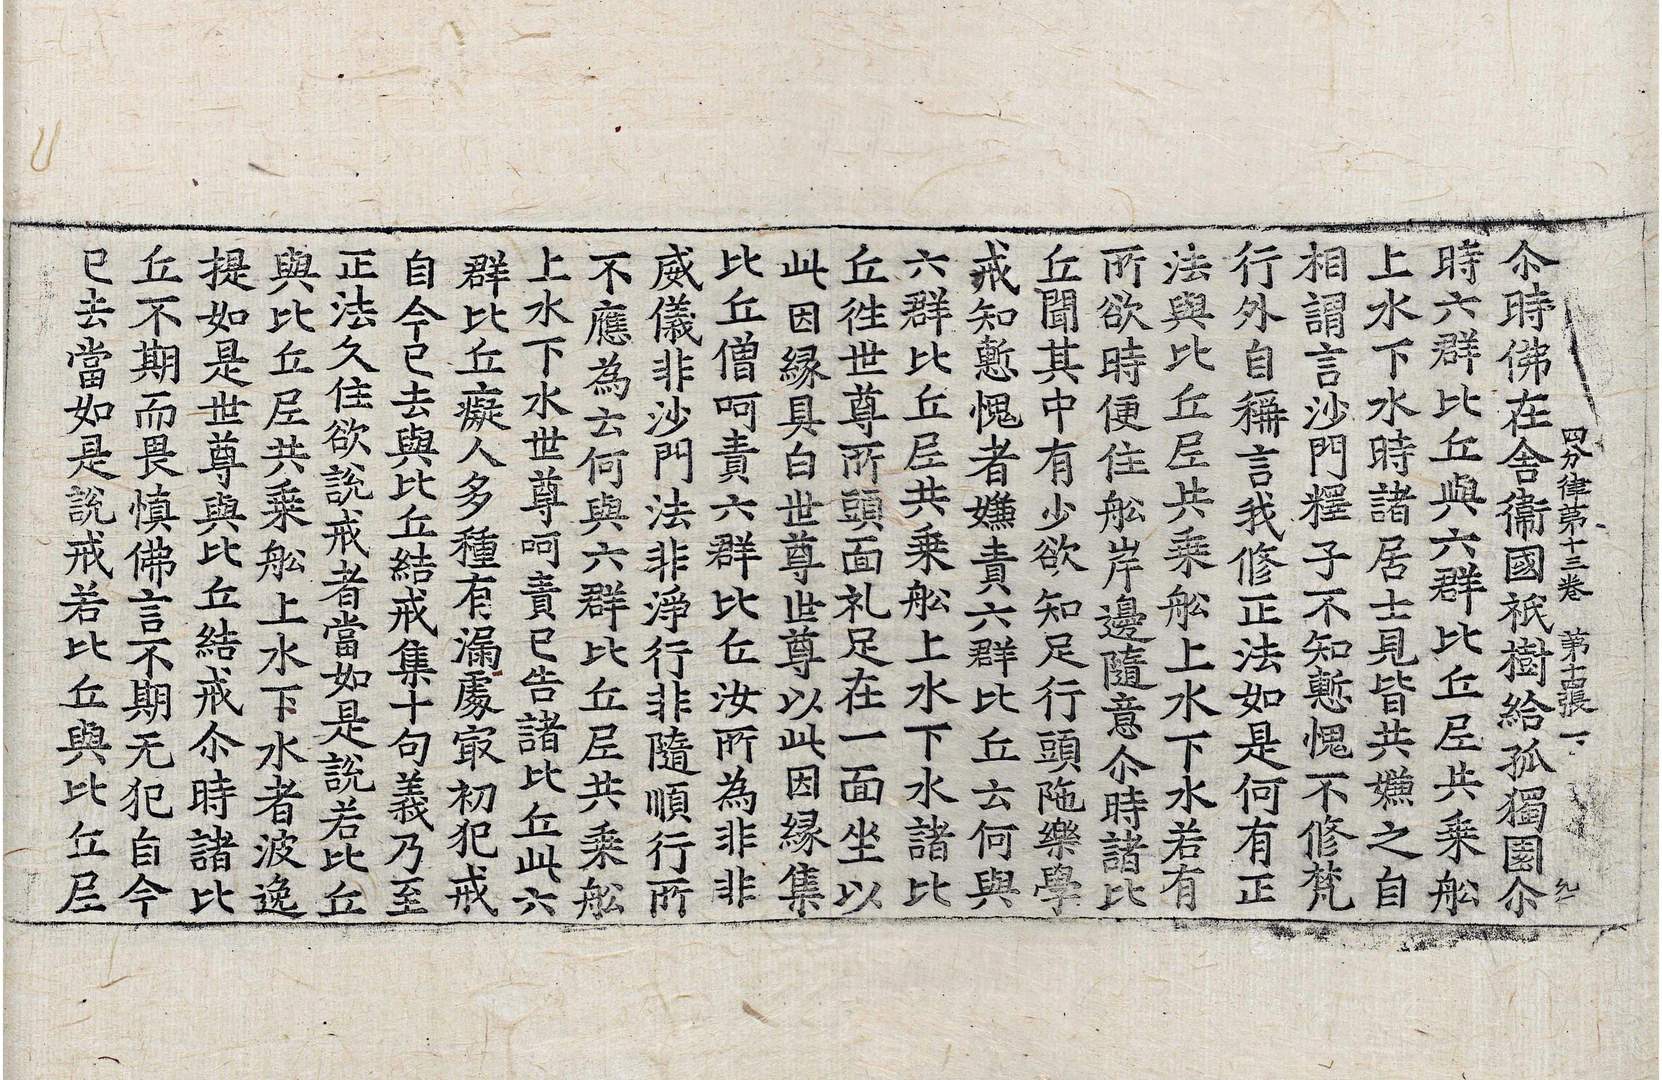 四分律第十三卷　第十四張
尒時佛在舍衞國祇樹給孤獨園尒
時六群比丘與六群比丘尼共乘舩
上水下水時諸居士見皆共嫌之自
相謂言沙門釋子不知慙愧不修梵
行外自稱言我修正法如是何有正
法與比丘尼共乘舩上水下水若有
所欲時便住舩岸邊隨意尒時諸比
丘聞其中有少欲知足行頭陁樂學
戒知慙愧者嫌責六群比丘云何與
六群比丘尼共乘舩上水下水諸比
丘往世尊所頭面礼足在一面坐以
此因縁具白世尊世尊以此因縁集
比丘僧呵責六群比丘汝所為非非
威儀非沙門法非淨行非隨順行所
不應為云何與六群比丘尼共乘舩
上水下水世尊呵責已告諸比丘此六
群比丘癡人多種有漏處冣初犯戒
自今已去與比丘結戒集十句義乃至
正法久住欲說戒者當如是說若比丘
與比丘尼共乘舩上水下水者波逸
提如是世尊與比丘結戒尒時諸比
丘不期而畏慎佛言不期无犯自今
已去當如是說戒若比丘與比丘尼